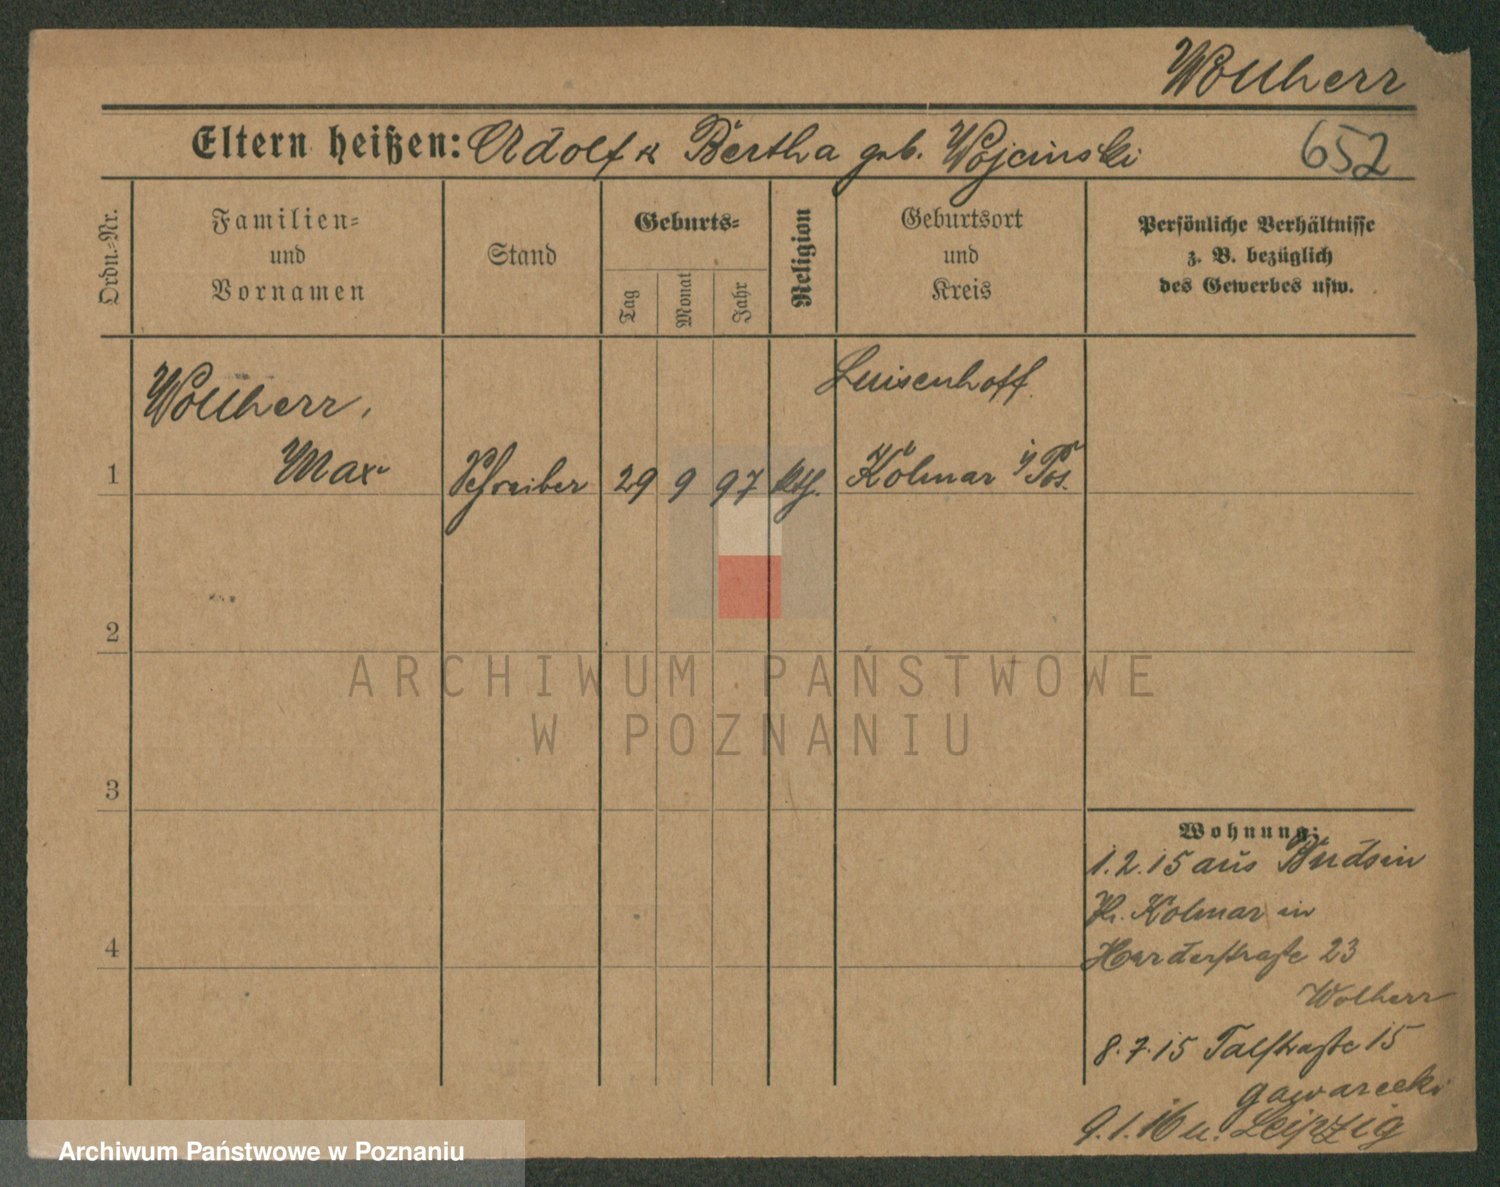 Wollherr
Eltern heißen: Adolf u Bertha geb. Wojcinski
652
Ordn.-Nr.
Familien-
und
Vornamen
Stand
Geburts-
Tag
Monat
Jahr
Religion
Geburtsort
und
Kreis
Persönliche Verhältnisse
z. B. bezüglich
des Gewerbes usw.
Wollherr,
Luisenhoff
1 Max Schreiber 29 9 97 Kth. Kolmar i/Pos.
2
ARCHIWUM PAŃSTWOWE
W POZNANIU
3
Wohnung:
1.2.15 aus Budsin
Kr. Kolmar in
4
Harderstraße 23
Wolherr
8.7.15 Talstraße 15
Gawarecki
9.1.16 u. Leipzig
Archiwum Państwowe w Poznaniu